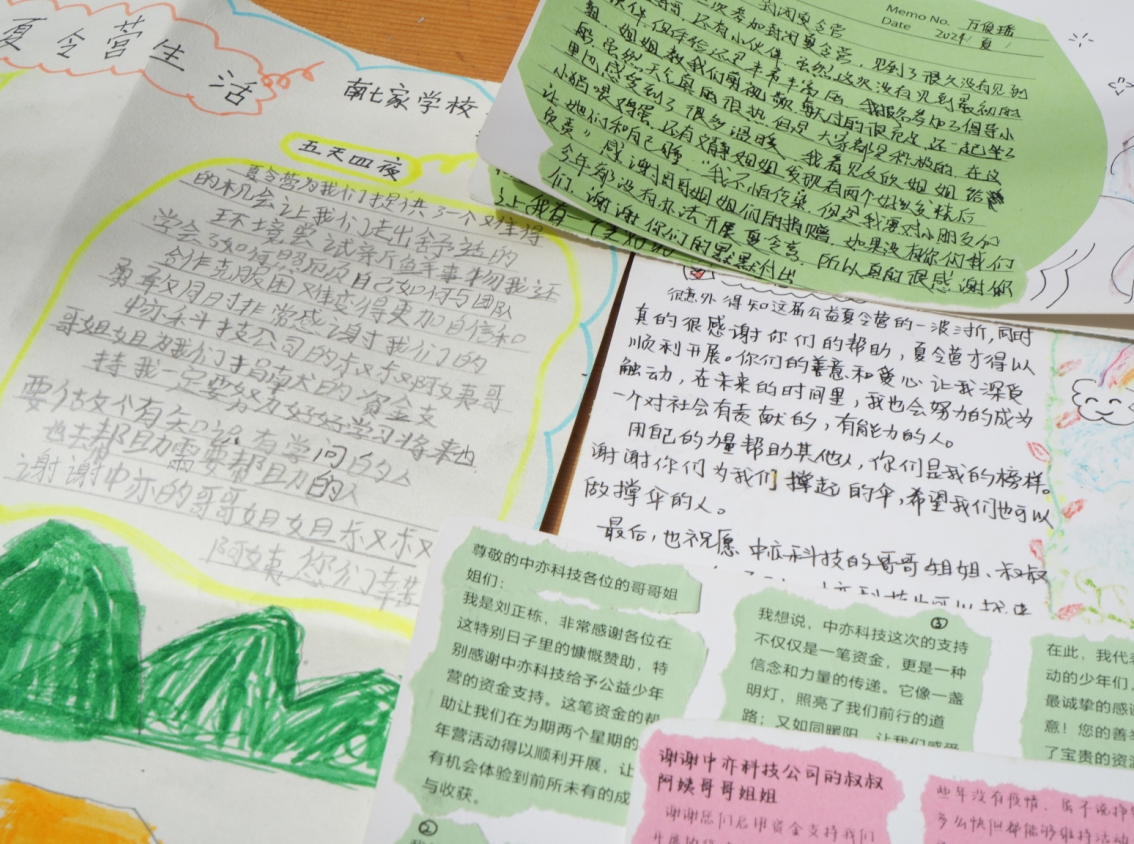 夏令营生活
南七家学校
五天四夜
夏令营为我们提供了一个难得
的机会让我们走出舒适的
环境尝试新鲜事物我还
学会了如何照顾自己如何与团队
合作克服困难变得更加自信和
勇敢同时非常感谢对我们的
中亦科技公司的叔叔阿姨哥
哥姐姐为我们捐的大的资金支
持我一定要努力好好学习将来也
要做个有知识有学问的人
也去帮助需要帮助的人
谢谢中亦的哥哥姐姐叔叔
阿姨您们辛苦
Memo No.
Date 2024 夏
次参加封闭夏令营
姐姐教我们剪视
里。感受到了很多温暖、我看见文欣姐姐给
让她们和自己睡："我不怕传染，但是我要对小朋友们
负责》
感谢哥哥姐姐们的捐赠，如果没有你们我们
今年都没有办法开展夏令营，所以真的很感谢你
们，谢谢你们的默默付出
很意外得知这届公益夏令营的一波三折，同时
真的很感谢你们的帮助，夏令营才得以
顺利开展。你们的善意和爱心让我深受
触动，在未来的时间里，我也会努力的成为
一个对社会有贡献的，有能力的人。
用自己的力量帮助其他人，你们是我的榜样。
谢谢你们为我们撑起的伞，希望我们也可以
做撑伞的人。
最后，也祝愿中亦科技的哥哥姐姐、叔叔
尊敬的中亦科技各位的哥哥姐
姐们：
我是刘正栋，非常感谢各位在
这特别日子里的慷慨赞助，特
别感谢中亦科技给予公益少年
营的资金支持。这笔资金的帮
助让我们在为期两个星期的
年营活动得以顺利开展，让
有机会体验到前所未有的成
与收获。
②
③
我想说，中亦科技这次的支持
不仅仅是一笔资金，更是一种
信念和力量的传递。它像一盏
明灯，照亮了我们前行的道
路；又如同暖阳，让我们感受
在此，我代表
动的少年们，
最诚挚的感谢
意！您的善举
了宝贵的资源
谢谢中亦科技公司的叔叔
阿姨哥哥姐姐
谢谢您们启用资金支持我们
多么快但都能够维持活动